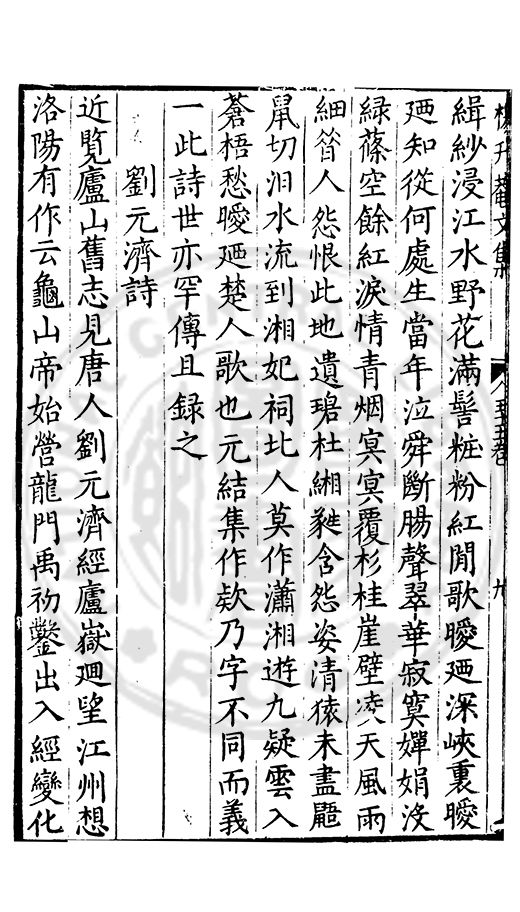 楊升菴文集 八五十五卷 九
緝紗浸江水野花滿髻粧粉紅閒歌曖廼深峽裏曖
廼知從何處生當年泣舜斷腸聲翠華寂寞嬋娟沒
綠篠空餘紅淚情青烟冥冥覆杉桂崖壁凌天風雨
細昝人怨恨此地遺碧杜緗蕤含怨姿清猿未盡鼯
鼠切泪水流到湘妃祠北人莫作瀟湘遊九疑雲入
蒼梧愁曖廼楚人歌也元結集作欸乃字不同而義
一此詩世亦罕傳且録之
劉元濟詩
近覽廬山舊志見唐人劉元濟經廬嶽廻望江州想
洛陽有作云龜山帝始營龍門禹初鑿出入經變化